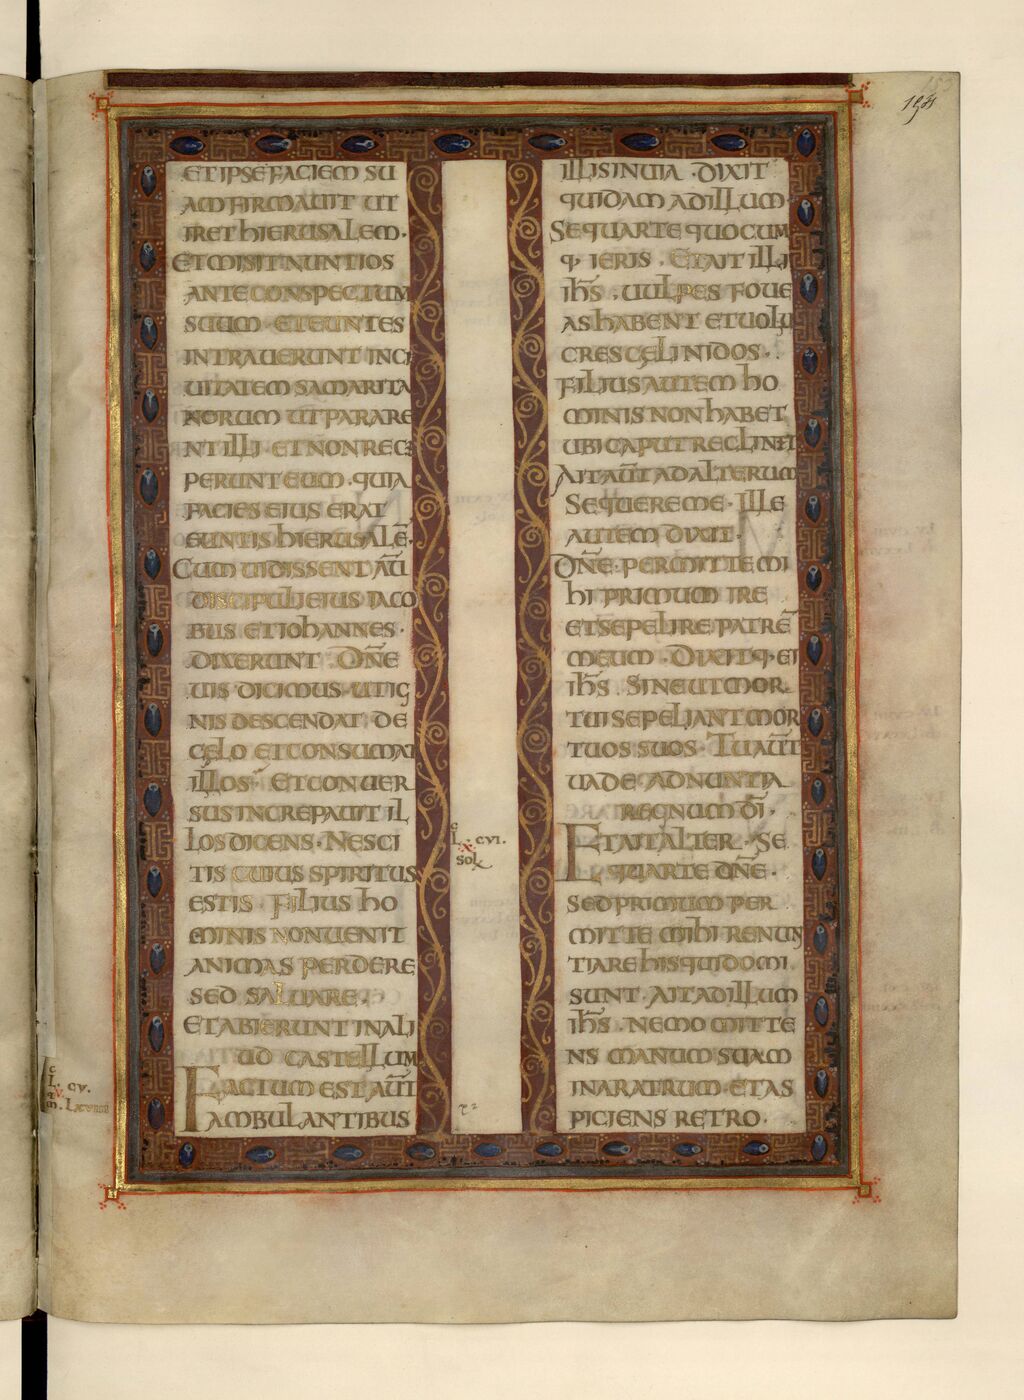 ET IPSE FACIEM SU
AM FIRMAVIT UT
IRET HIERUSALEM ·
ET MISIT NUNTIOS
ANTE CONSPECTUM
SUUM · ET EUNTES
INTRAVERUNT IN CI
VITATEM SAMARITA
NORUM UT PARARE
NT ILLI · ET NON RECE
PERUNT EUM · QUIA
FACIES EIUS ERAT
EUNTIS HIERUSALĒ ·
CUM VIDISSENT AŪ
DISCIPULI EIUS IACO
BUS ET IOHANNES ·
DIXERUNT · DN̄E
VIS DICIMUS · UT IG
NIS DESCENDAT DE
CĘLO ET CONSUMAT
ILLOS · ET CONVER
SUS INCREPAVIT IL
LOS DICENS · NESCI
TIS CUIUS SPIRITUS
ESTIS · FILIUS HO
MINIS NON VENIT
ANIMAS PERDERE
SED SALVARE ·
ET ABIERUNT IN ALI
UD CASTELLUM
FACTUM EST AŪT
AMBULANTIBUS
CV.
M. LXVIIII
ILLIS IN VIA · DIXIT
QUIDAM AD ILLUM ·
SEQUAR TE QUOCUM
Q· IERIS · ET AIT ILLI
IH̄S · VULPES FOVE
AS HABENT ET VOLU
CRES CĘLI NIDOS ·
FILIUS AUTEM HO
MINIS NON HABET
UBI CAPUT RECLINET
AIT AŪT AD ALTERUM
SEQUERE ME · ILLE
AUTEM DIXIT ·
DN̄E · PERMITTE MI
HI PRIMUM IRE
ET SEPELIRE PATRĒ
MEUM · DIXITQ· EI
IH̄S · SINE UT MOR
TUI SEPELIANT MOR
TUOS SUOS · TU AŪT
VADE ADNUNTIA
REGNUM DĪ ·
ET AIT ALTER · SE
QUAR TE DN̄E ·
SED PRIMUM PER
MITTE MIHI RENUN
TIARE HIS QUI DOMI
SUNT · AIT AD ILLUM
IH̄S · NEMO MITTE
NS MANUM SUAM
IN ARATRUM · ET AS
PICIENS RETRO ·
L. CVI.
X
SOL